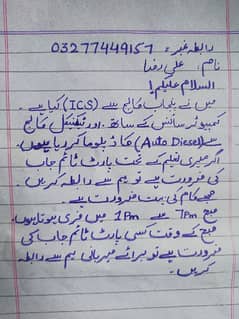 رابطہ نمبر: 03277449157
نام: علی رضا
السلام علیکم!
میں نے پنجاب کالج سے (ICS) کیا ہے۔
کمپیوٹر سائنس کے ساتھ۔ اور ٹیکنیکل کالج
سے (Auto Diesel) کا ڈپلوما کر رہا ہوں۔
اگر میری تعلیم کے تحت پارٹ ٹائم جاب
کی ضرورت ہے تو ہم سے رابطہ کریں۔
مجھے کام کی بہت ضرورت ہے۔
صبح 7Pm سے 1Pm میں فری ہوتا ہوں۔
صبح کے وقت کسی پارٹ ٹائم جاب کی
ضرورت ہے تو برائے مہربانی ہم سے رابطہ
کریں۔